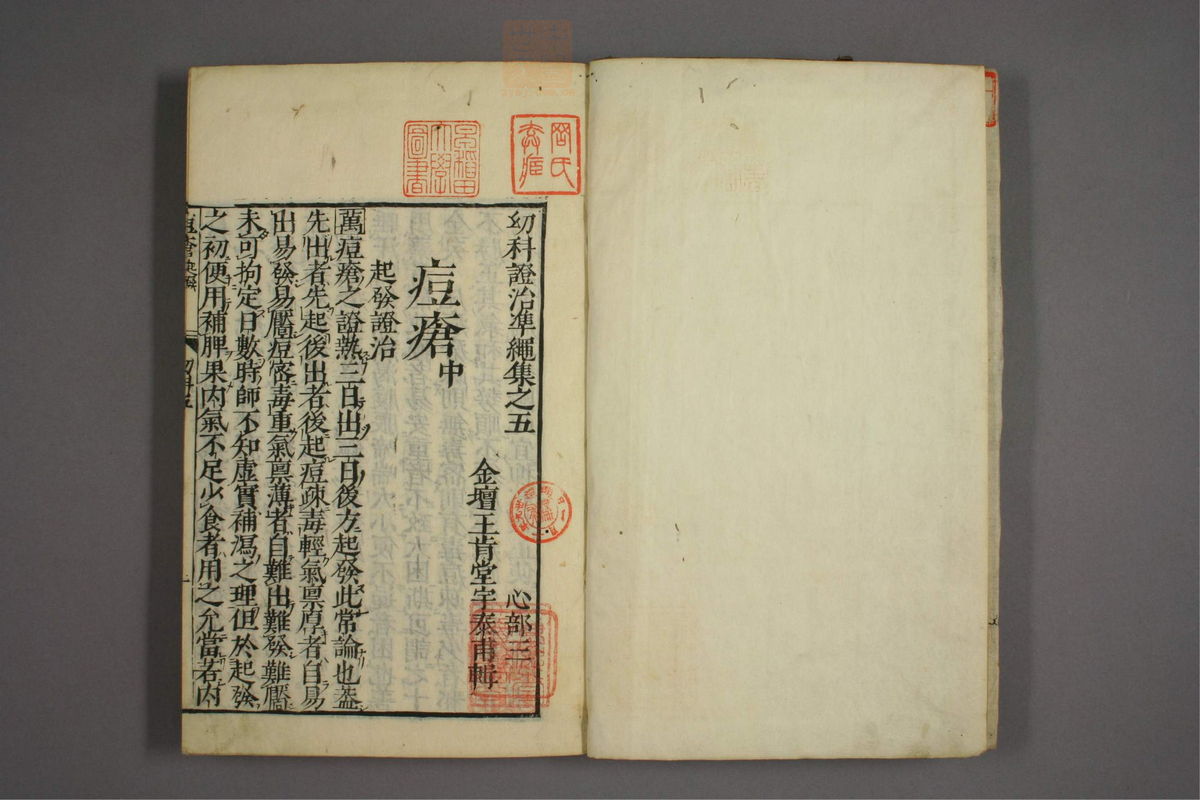 幼科證治準繩集之五 心部三
金壇王肯堂宇泰甫輯
痘瘡中
起發證治
萬痘瘡之證熱三日出三日後方起發此常論也蓋
先出者先起後出者後起痘疎毒輕氣禀厚者自易
出易發易靨痘密毒重氣禀薄者自難出難發難靨
未可拘定日數時師不知虛實補瀉之理但於起發
之初便用補脾果内氣不足少食者用之允當若内
幼科五
早稻田大學圖書